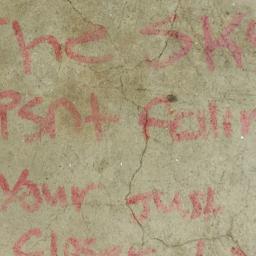 The SK
isnt Fallin
Your Just
Closer